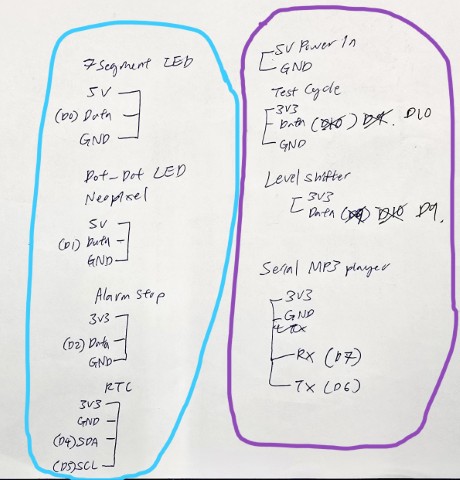 7 Segment LED
5V
(D0) Data
GND
Dot-Dot LED
Neopixel
5V
(D1) Data
GND
Alarm Stop
3V3
(D2) Data
GND
RTC
3V3
GND
(D4) SDA
(D5) SCL
5V Power In
GND
Test Cycle
3V3
Data D10
GND
Level shifter
3V3
Data D9.
Serial MP3 player
3V3
GND
RX (D7)
TX (D6)